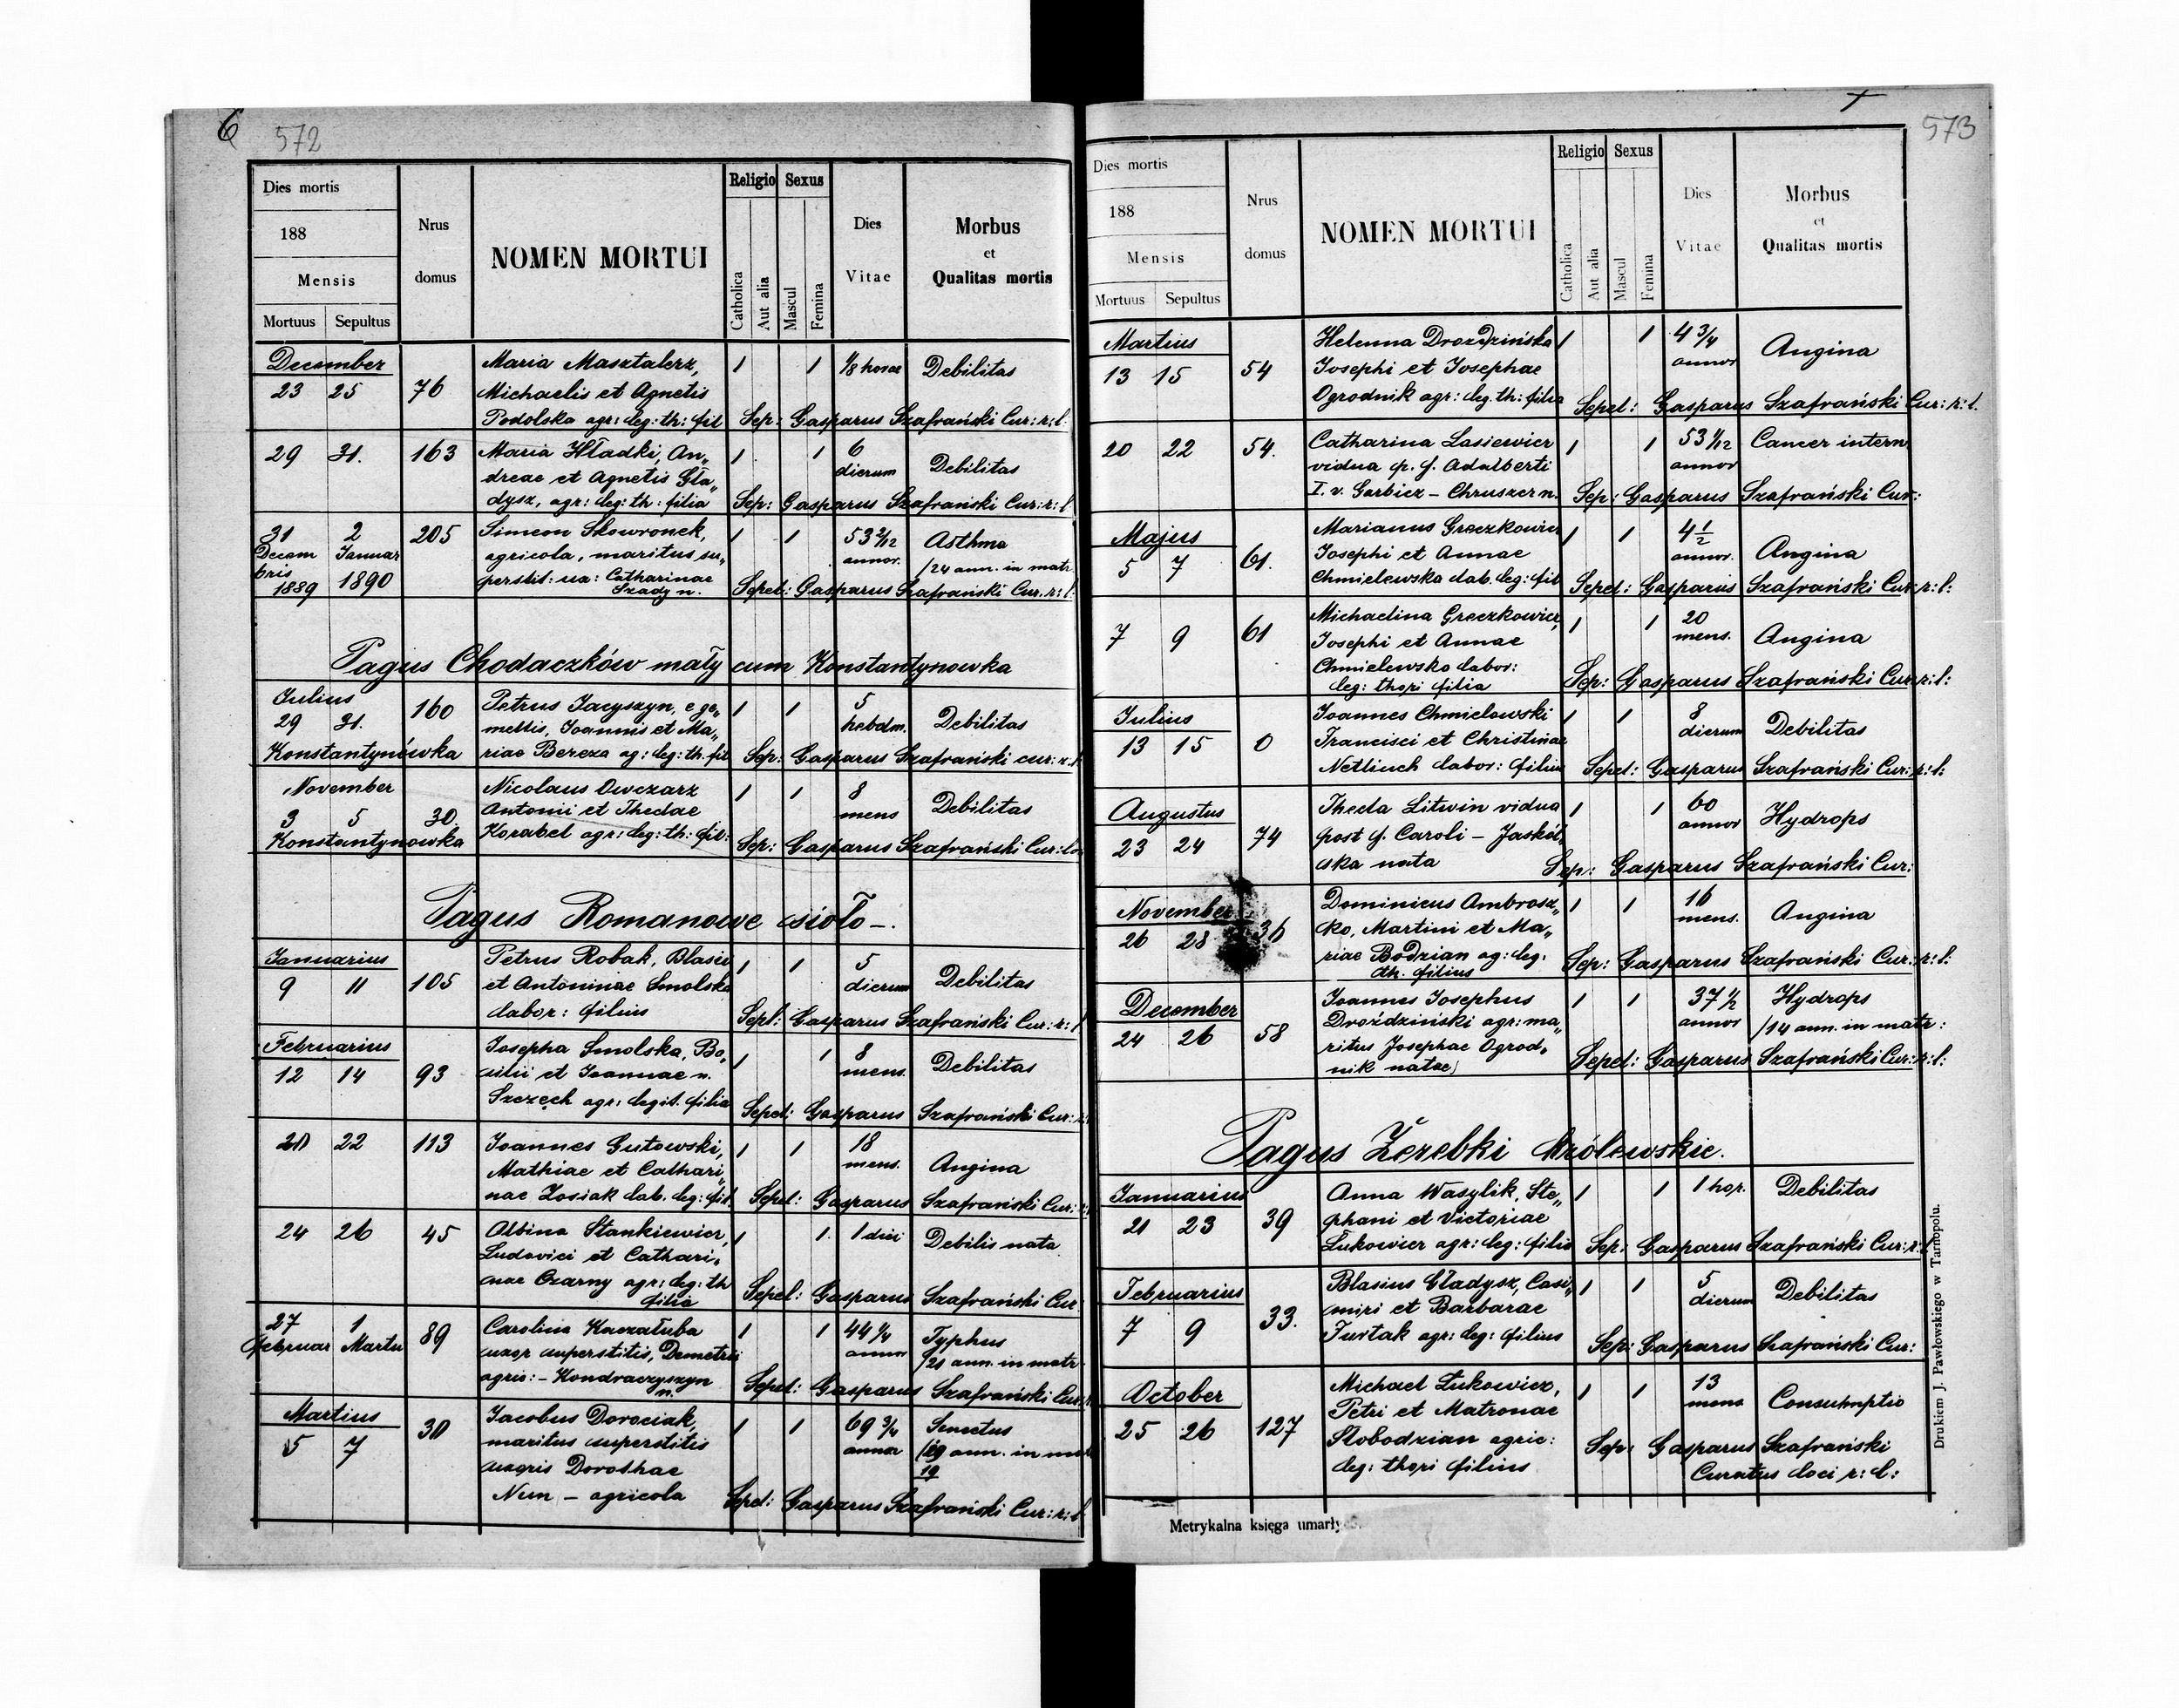 6 572
Dies mortis
188
Mensis
Mortuus Sepultus
Nrus domus
NOMEN MORTUI
Religio Sexus
Catholica Aut alia Mascul Femina
Dies Vitae
Morbus et Qualitas mortis
December
23 25 76 Maria Masztalerz, 1 1 1/8 horae Debilitas
Michaelis et Agnetis
Podolska agr: leg: th: fil Sep: Gasparus Szafrański Cur: r: l:
29 31. 163 Maria Hładki, An„ 1 1 6 dierum Debilitas
dreae et Agnetis Gła„
dysz, agr: leg: th: filia Sep: Gasparus Szafrański Cur: r: l
31 Decembris 1889 2 Januar 1890 205 Simeon Skowronek, 1 1 53 2/12 annor. Asthma
agricola, maritus su„ /24 ann. in matr
perstit: ux: Catharinae
Szady n. Sepel: Gasparus Szafrański Cur. r: l:
Pagus Chodaczków mały cum Konstantynowka
Julius
29 31. 160 Petrus Jacyszyn, e ge„ 1 1 5 hebdm. Debilitas
mellis, Joannis et Ma„
Konstantynówka riae Bereza ag: leg: th. fil Sep: Gasparus Szafrański cur: r. l
November Nicolaus Owczarz 1 1 8 mens Debilitas
3 5 30. Antonii et Thedae
Konstantynowka Korabel agr: leg: th: fil: Sep: Gasparus Szafrański Cur: loc
Pagus Romanowe sioło -.
Januarius
9 11 105 Petrus Robak, Blasii 1 1 5 dierum Debilitas
et Antoninae Smolska
labor: filius Sepl: Gasparus Szafrański Cur: r: l
Februarius
12 14 93 Josepha Smolska, Ba„ 1 1 8 mens. Debilitas
silii et Joannae n.
Szczęch agr: legit. filia Sepel: Gasparus Szafrański Cur: r:
20 22 113 Joannes Gutowski, 1 1 18 mens. Angina
Mathiae et Cathari„
nae Zosiak lab. leg: fil. Sepel: Gasparus Szafrański Cur: r:
24 26 45 Albina Stankiewicz, 1 1. 1 diei Debilis nata
Ludovici et Cathari„
nae Czarny agr: leg: th
filia Sepel: Gasparus Szafrański Cur:
27 Februar 1 Martii 89 Carolina Kaczałuba 1 1 44 1/4 annor Typhus
uxor superstitis, Demetrii /21 ann. in matr.
agric: - Kondraczyszyn
n. Sepel: Gasparus Szafrański Cur:
Martius
5 7 30 Jacobus Dorociak 1 1 69 3/4 annor Senectus
maritus superstitis /19 ann. in mat
uxoris Dorothae 19
Nun - agricola Sepel: Gasparus Szafrański Cur: r: l.
573
Dies mortis
188
Mensis
Mortuus Sepultus
Nrus domus
NOMEN MORTUI
Religio Sexus
Catholica Aut alia Mascul Femina
Dies Vitae
Morbus et Qualitas mortis
Martius
13 15 54 Helenna Drozdzińska 1 1 4 3/4 annor Angina
Josephi et Josephae
Ogrodnik agr: leg. th: filia Sepel: Gasparus Szafrański Cur: r: l.
20 22 54. Catharina Lasiewicz 1 1 53 1/12 annor Cancer intern.
vidua p. f. Adalberti
I. v. Garbicz - Chruszcz n. Sep: Gasparus Szafrański Cur:
Majus
5 7 61. Marianus Greczkowicz 1 1 4 1/2 annor. Angina
Josephi et Annae
Chmielewska lab. leg: fil Sepel: Gasparus Szafrański Cur: r: l:
7 9 61 Michaelina Greczkowicz, 1 1 20 mens. Angina
Josephi et Annae
Chmielewska labor:
leg: thori filia Sep: Gasparus Szafrański Cur: r: l:
Julius
13 15 0 Joannes Chmielowski 1 1 8 dierum Debilitas
Francisci et Christinae
Netliuch labor: filius Sepel: Gasparus Szafrański Cur: r: l:
Augustus
23 24 74 Theda Litwin vidua 1 1 60 annor Hydrops
post f. Caroli - Jaskól„
ska nata Sep: Gasparus Szafrański Cur:
November
26 28 36 Dominicus Ambrosz„ 1 1 16 mens. Angina
ko, Martini et Ma„
riae Bodzian ag: leg:
th. filius Sep: Gasparus Szafrański Cur: r: l:
December
24 26 58 Joannes Josephus 1 1 37 1/2 annor Hydrops
Droździński agr: ma„ /14 ann. in matr:
ritus Josephae Ogrod„
nik natae) Sepel: Gasparus Szafrański Cur: r: l:
Pagus Żerebki królewskie.
Januarius
21 23 39 Anna Wasylik, Ste„ 1 1 1 hor. Debilitas
phani et Victoriae
Łukowicz agr: leg: filia Sep: Gasparus Szafrański Cur: r: l
Februarius
7 9 33. Blasius Gładysz, Casi„ 1 1 5 dierum Debilitas
miri et Barbarae
Furtak agr: leg: filius Sep: Gasparus Szafrański Cur:
October
25 26 127 Michael Łukowicz, 1 1 13 mens Consuhmptio
Petri et Matronae
Slobodzian agric:
leg: thori filius Sep: Gasparus Szafrański
Curatus loci r: l:
Metrykalna księga umarłych.
Drukiem J. Pawłowskiego w Tarnopolu.